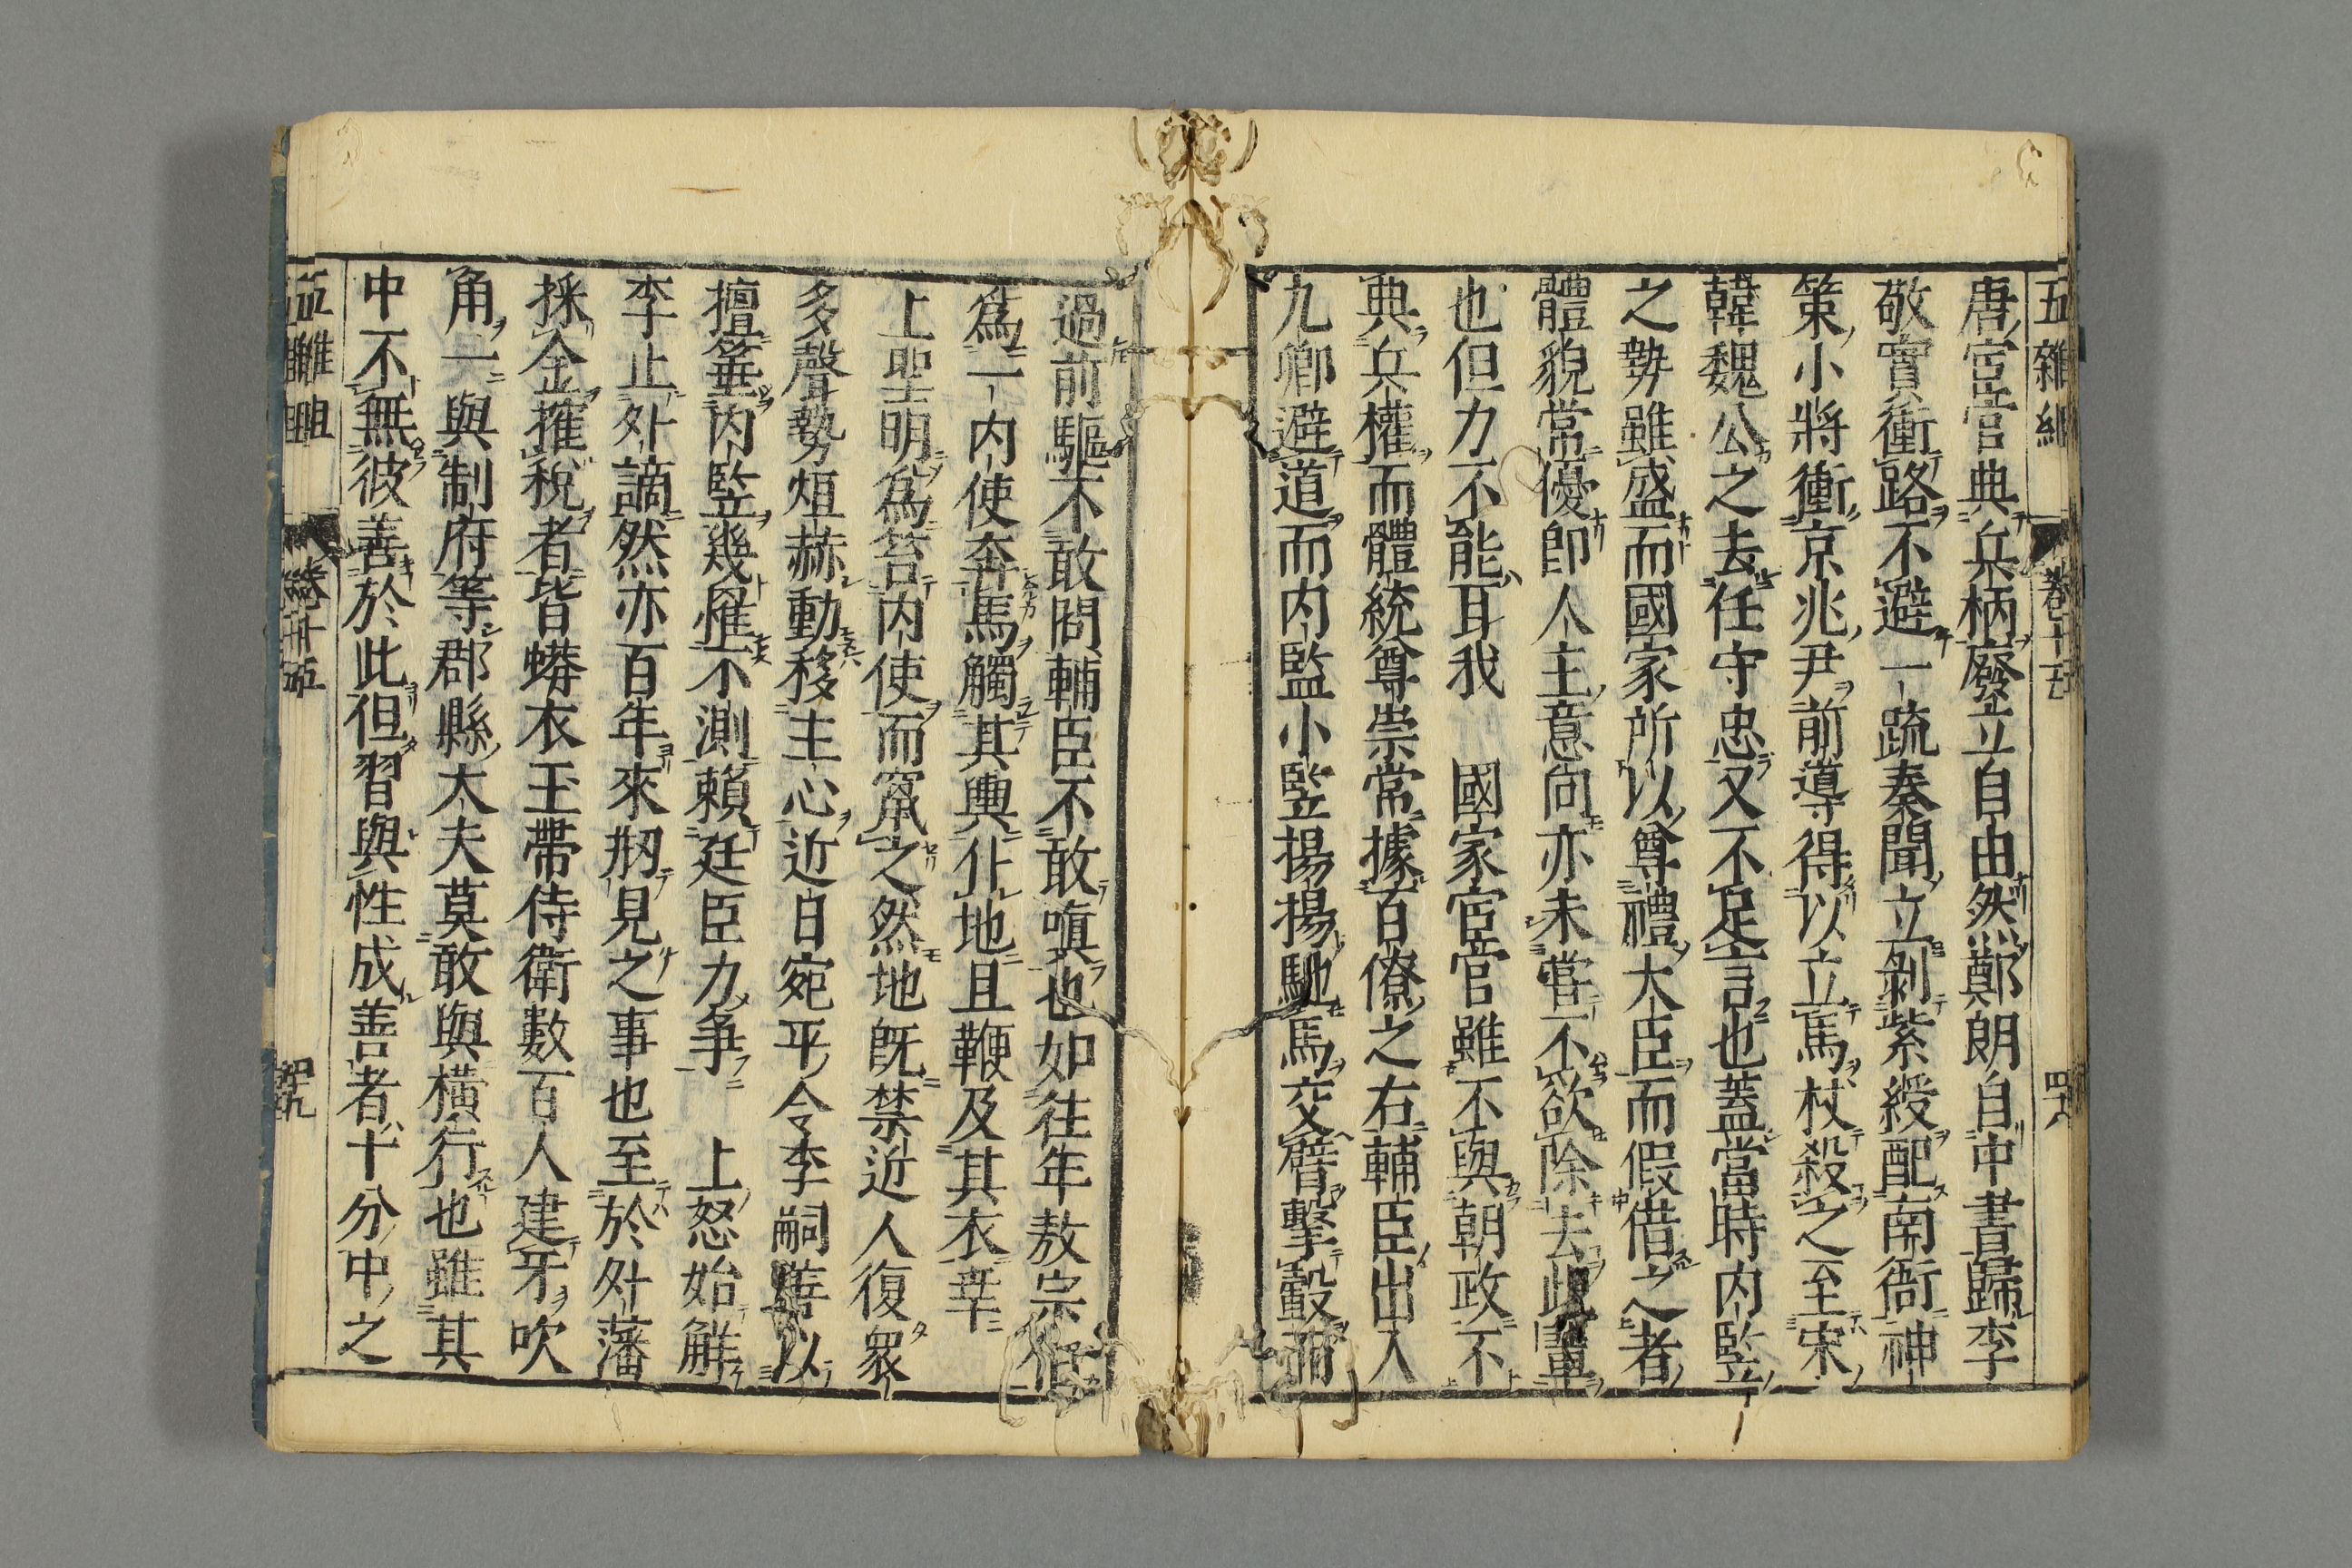 五雜組
卷十五
四八
唐宦官典兵柄廢立自由然鄭朗自中書歸李
敬實衝路不避一疏奏聞立剝紫綬配南衙神
策小將衝京兆尹前導得以立馬杖殺之至宋
韓魏公之去任守忠又不足言也蓋當時内監
之勢雖盛而國家所以尊禮大臣而假借之者
體貌常優即人主意向亦未嘗不欲除去此輩
也但力不能耳我　國家宦官雖不與朝政不
典兵權而體統尊崇常據百僚之右輔臣出入
九卿避道而内監小豎揚揚馳馬交臂擊轂而
過前驅不敢問輔臣不敢嗔也如往年敖宗伯
爲一内使奔馬觸其輿仆地且鞭及其衣幸
上聖明爲笞内使而竄之然地既禁近人復衆
多聲勢烜赫動移主心近日宛平令李嗣善以
擅箠内豎幾罹不測賴廷臣力爭　上怒始解
李止外謫然亦百年來剏見之事也至於外藩
採金摧稅者皆蟒衣玉帶侍衛數百人建牙吹
角一與制府等郡縣大夫莫敢與橫行也雖其
中不無彼善於此但習與性成善者十分中之
五雜組
卷十五
四十九